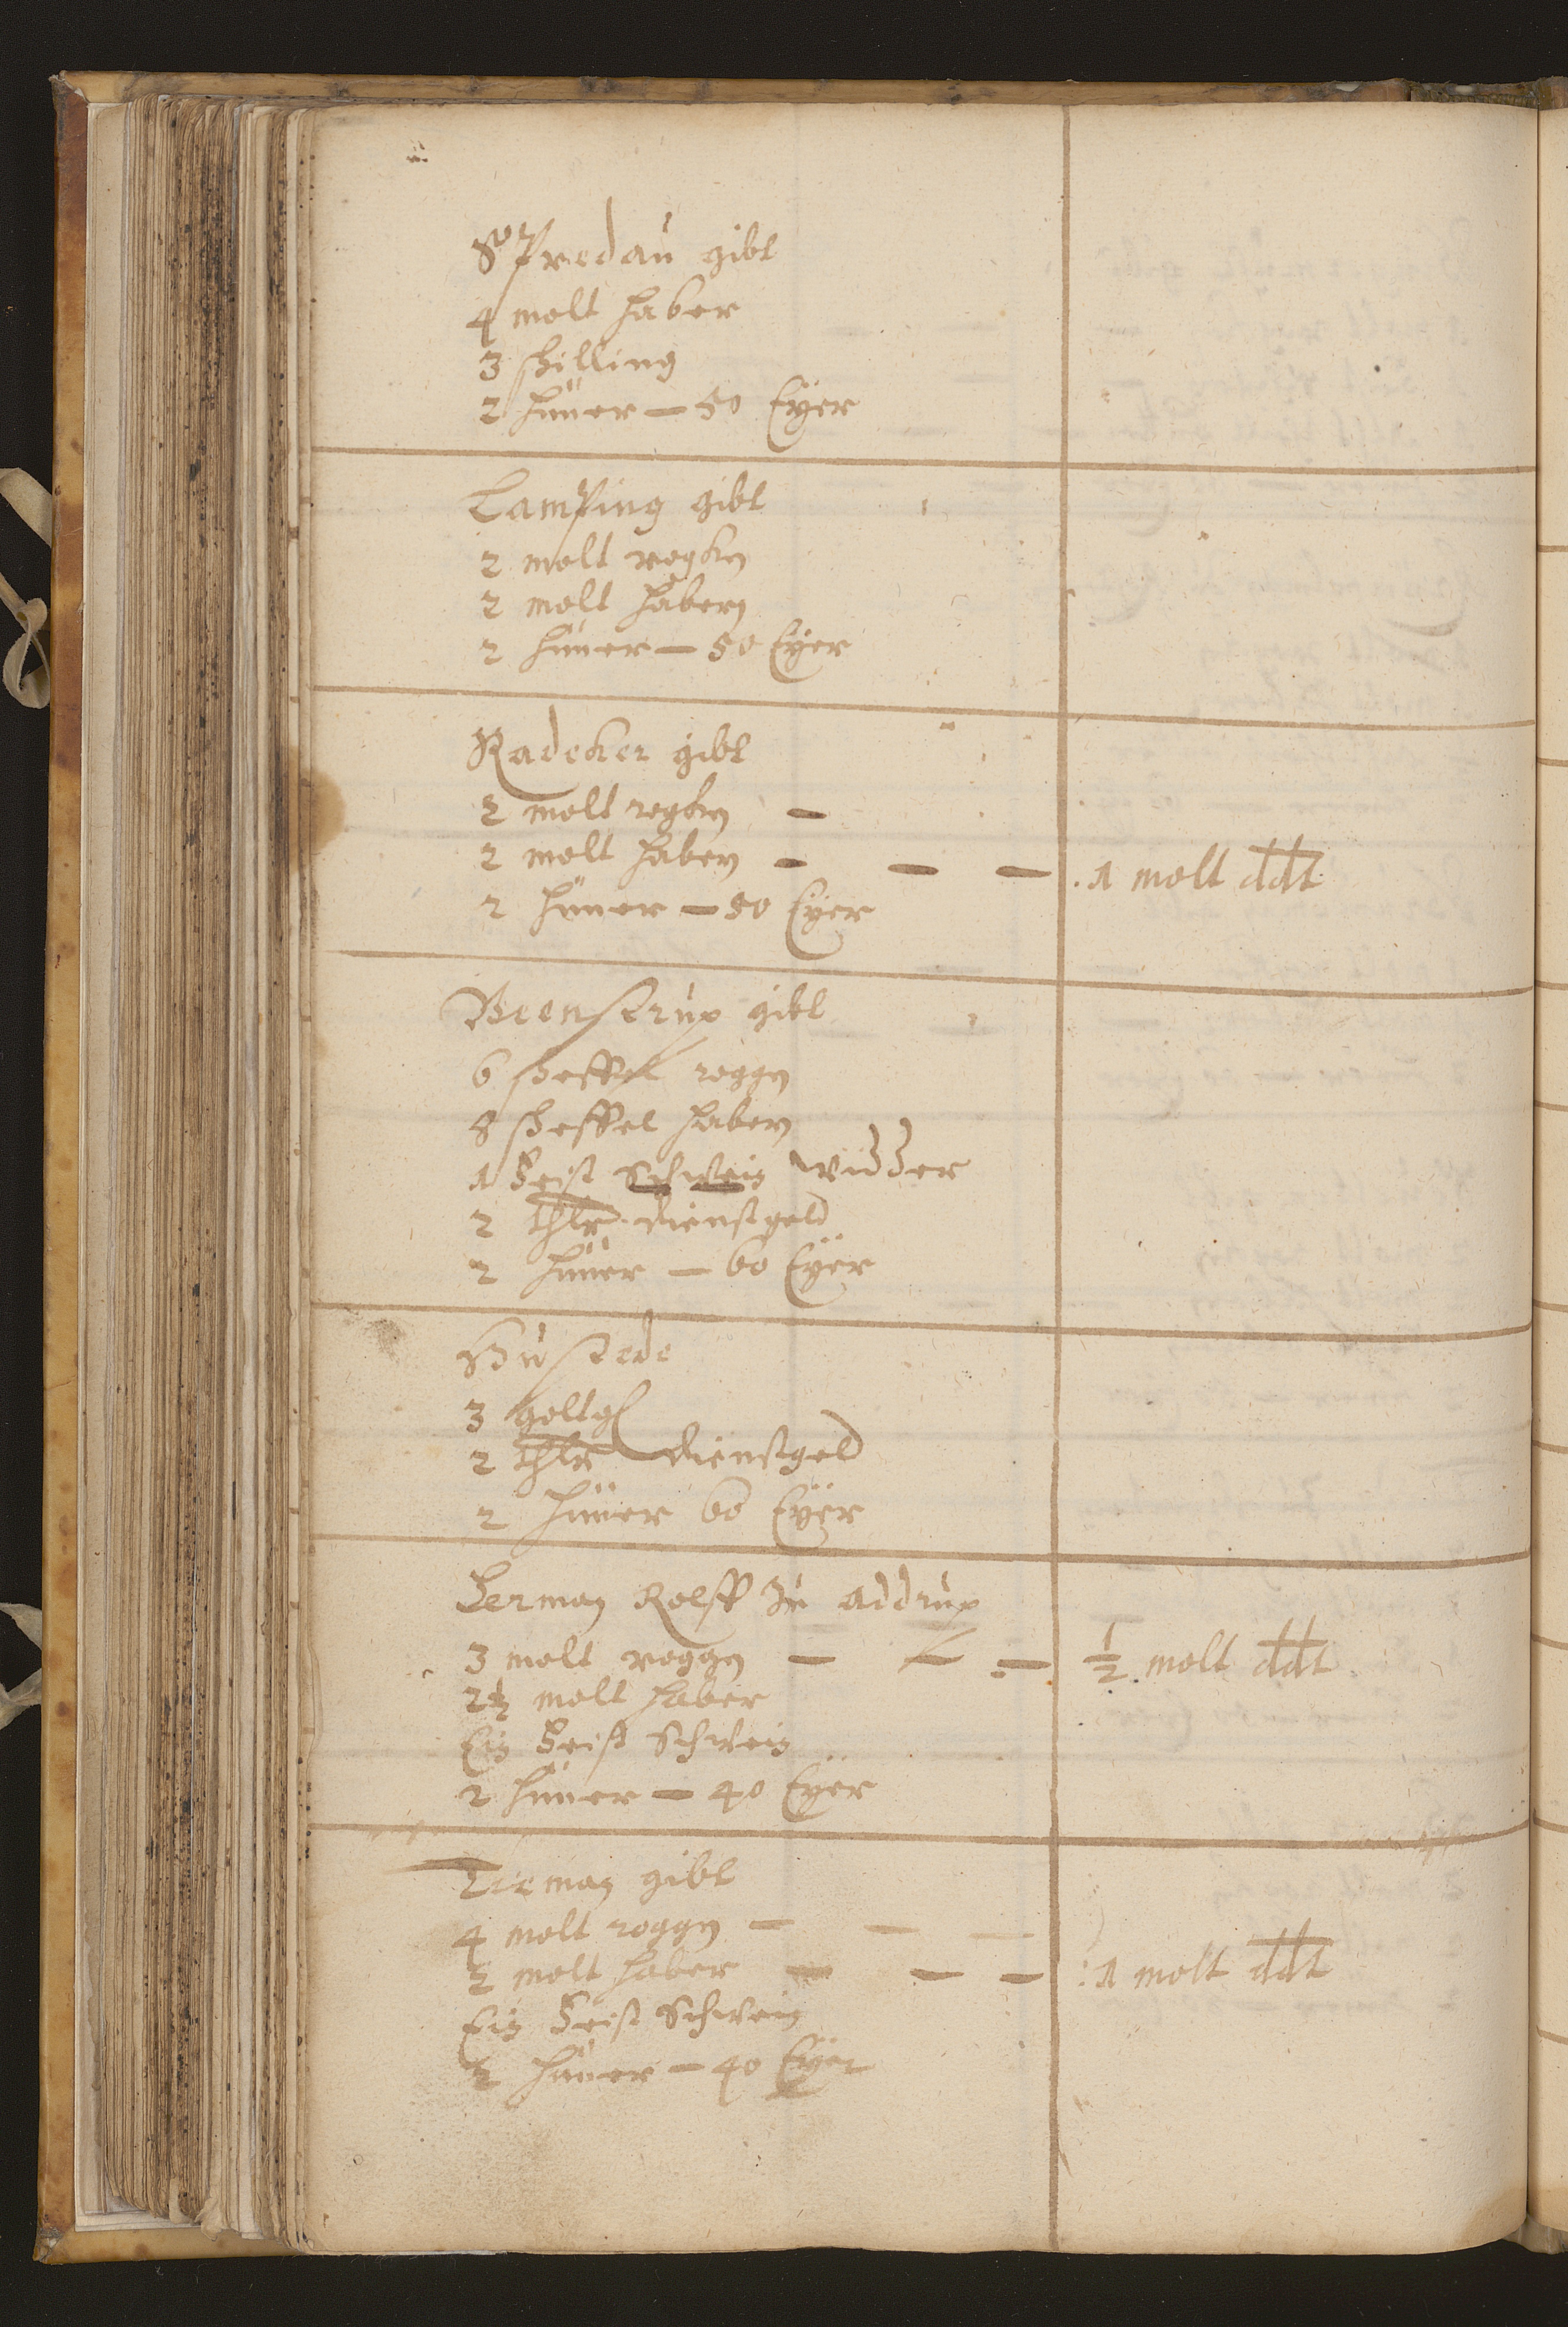 Spredau gibt
4 molt haber
3 schilling
2 hüner — 50 Eyer
Lamping gibt
2 molt rogken
2 molt habern
2 hüner — 50 Eyer
Radeker gibt
2 molt rogken —
2 molt habern — — — 1 molt ddt
2 hüner — 50 Eyer
Beenstrup gibt
6 scheffel roggen
8 scheffel habern
1 feist Schwein widder
2 thlr dienstgeld
2 hüner — 60 Eÿer
Bustede
3 goltgl
2 thlr dienstgeld
2 hüner 60 Eÿer
Herman Rolff zu addrup
3 molt roggen — — — ½ molt ddt
2½ molt haber
Ein feist Schwein
2 hüner — 40 Eÿer
Tieman gibt
4 molt roggen — — —
2 molt haber — — — 1 molt ddt
Ein feist Schwein
2 hüner — 40 Eÿer